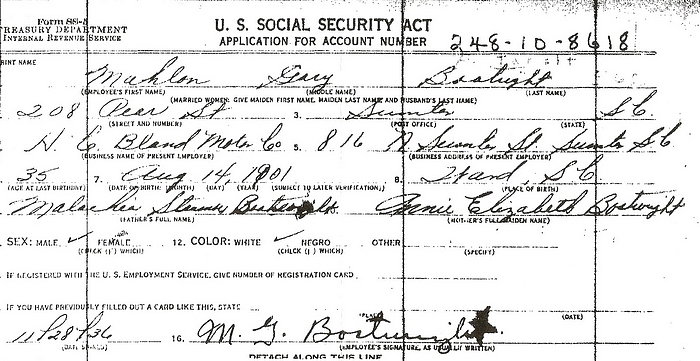 Form SS-5
TREASURY DEPARTMENT
INTERNAL REVENUE SERVICE
U. S. SOCIAL SECURITY ACT
APPLICATION FOR ACCOUNT NUMBER
248-10-8618
PRINT NAME
Mahlon Gary Boatwright
(EMPLOYEE'S FIRST NAME) (MIDDLE NAME) (LAST NAME)
(MARRIED WOMEN: GIVE MAIDEN FIRST NAME, MAIDEN LAST NAME, AND HUSBAND'S LAST NAME)
208 Pear St 3. Sumter S C
(STREET AND NUMBER) (POST OFFICE) (STATE)
H. C. Bland Motor Co 5. 816 N. Sumter St. Sumter S C
(BUSINESS NAME OF PRESENT EMPLOYER) (BUSINESS ADDRESS OF PRESENT EMPLOYER)
35 7. Aug 14, 1901 8. Hand, S C
(AGE AT LAST BIRTHDAY) (DATE OF BIRTH: (MONTH) (DAY) (YEAR) (SUBJECT TO LATER VERIFICATION) (PLACE OF BIRTH)
Boatwright Annie Elizabeth Boatwright
(FATHER'S FULL NAME) (MOTHER'S FULL MAIDEN NAME)
SEX: MALE ✓ FEMALE 12. COLOR: WHITE ✓ NEGRO OTHER
(CHECK (✓) WHICH) (CHECK (✓) WHICH) (SPECIFY)
IF REGISTERED WITH THE U. S. EMPLOYMENT SERVICE, GIVE NUMBER OF REGISTRATION CARD
IF YOU HAVE PREVIOUSLY FILLED OUT A CARD LIKE THIS, STATE
(PLACE) (DATE)
11/28/36 16. M. G. Boatwright
(DATE SIGNED) (EMPLOYEE'S SIGNATURE, AS USUALLY WRITTEN)
DETACH ALONG THIS LINE